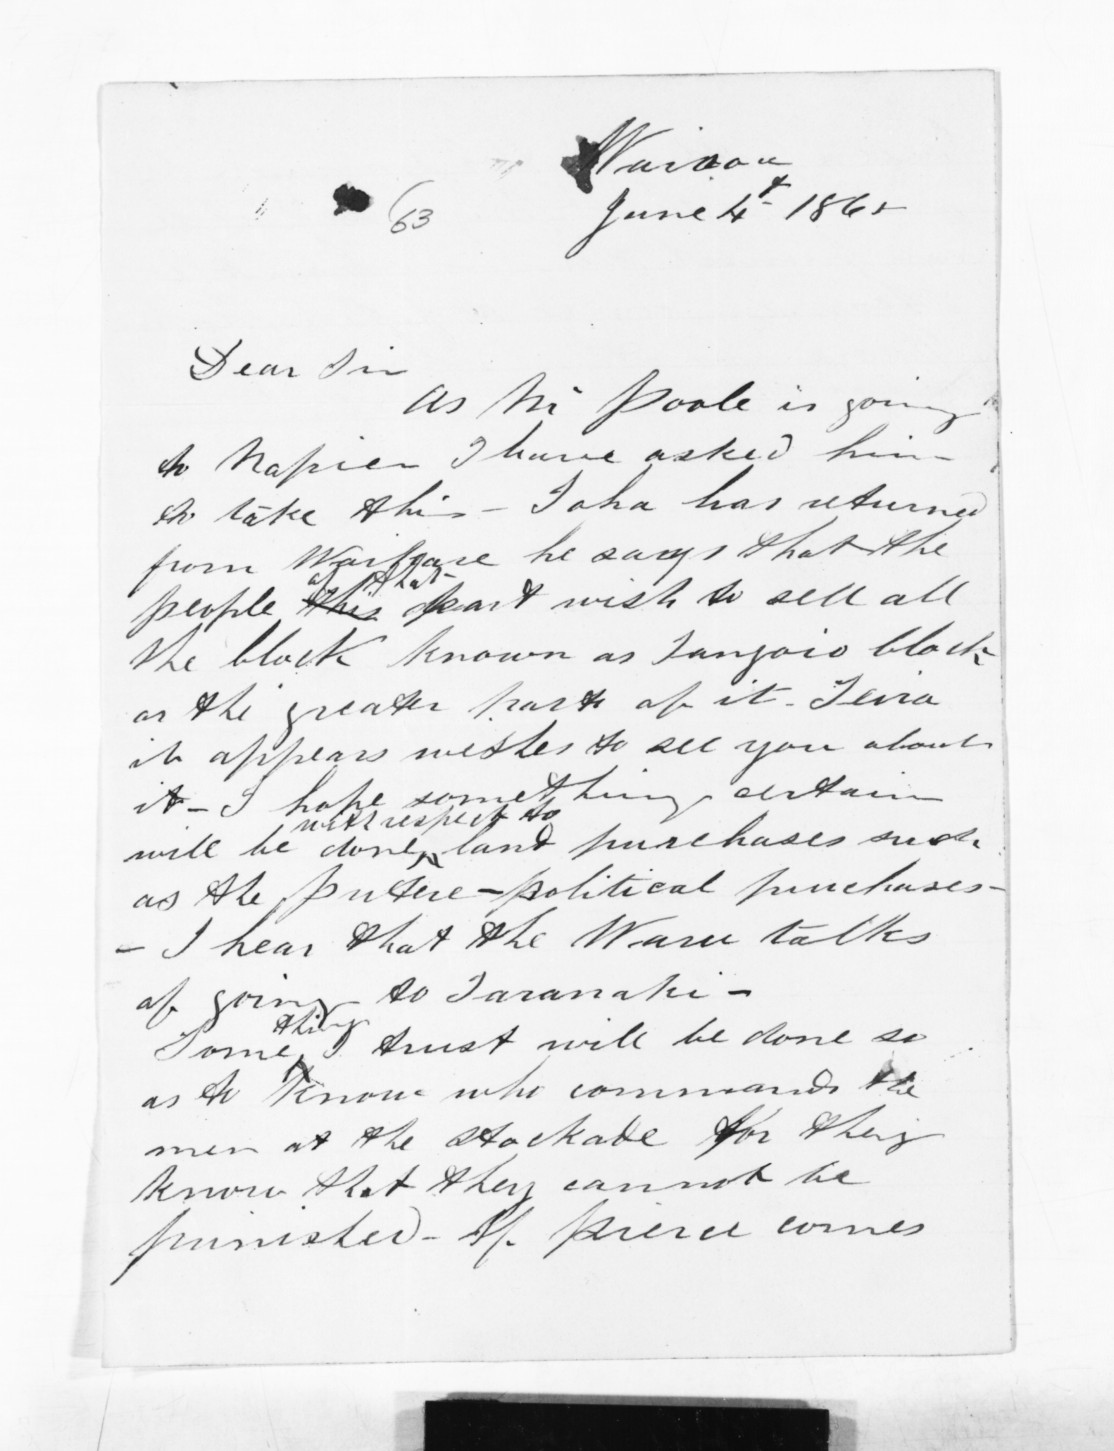 63
Wairoa
June 4th 186
Dear Sir
As Mr Poole is going
to Napier I have asked him
to take this - Ioha has returned
from he says that the
of that
people this part wish to sell all
the block known as Tangoio block
or the greater part of it -
it appears wishes to see you about
it - I hope something certain
with respect to
will be done, land purchases such
as the Putere - political purchases -
- I hear that the Waru talks
of going to Taranaki -
thing
Some I trust will be done so
as to know who commands the
men at the stockade for they
know that they cannot be
punished - If Pierce comes